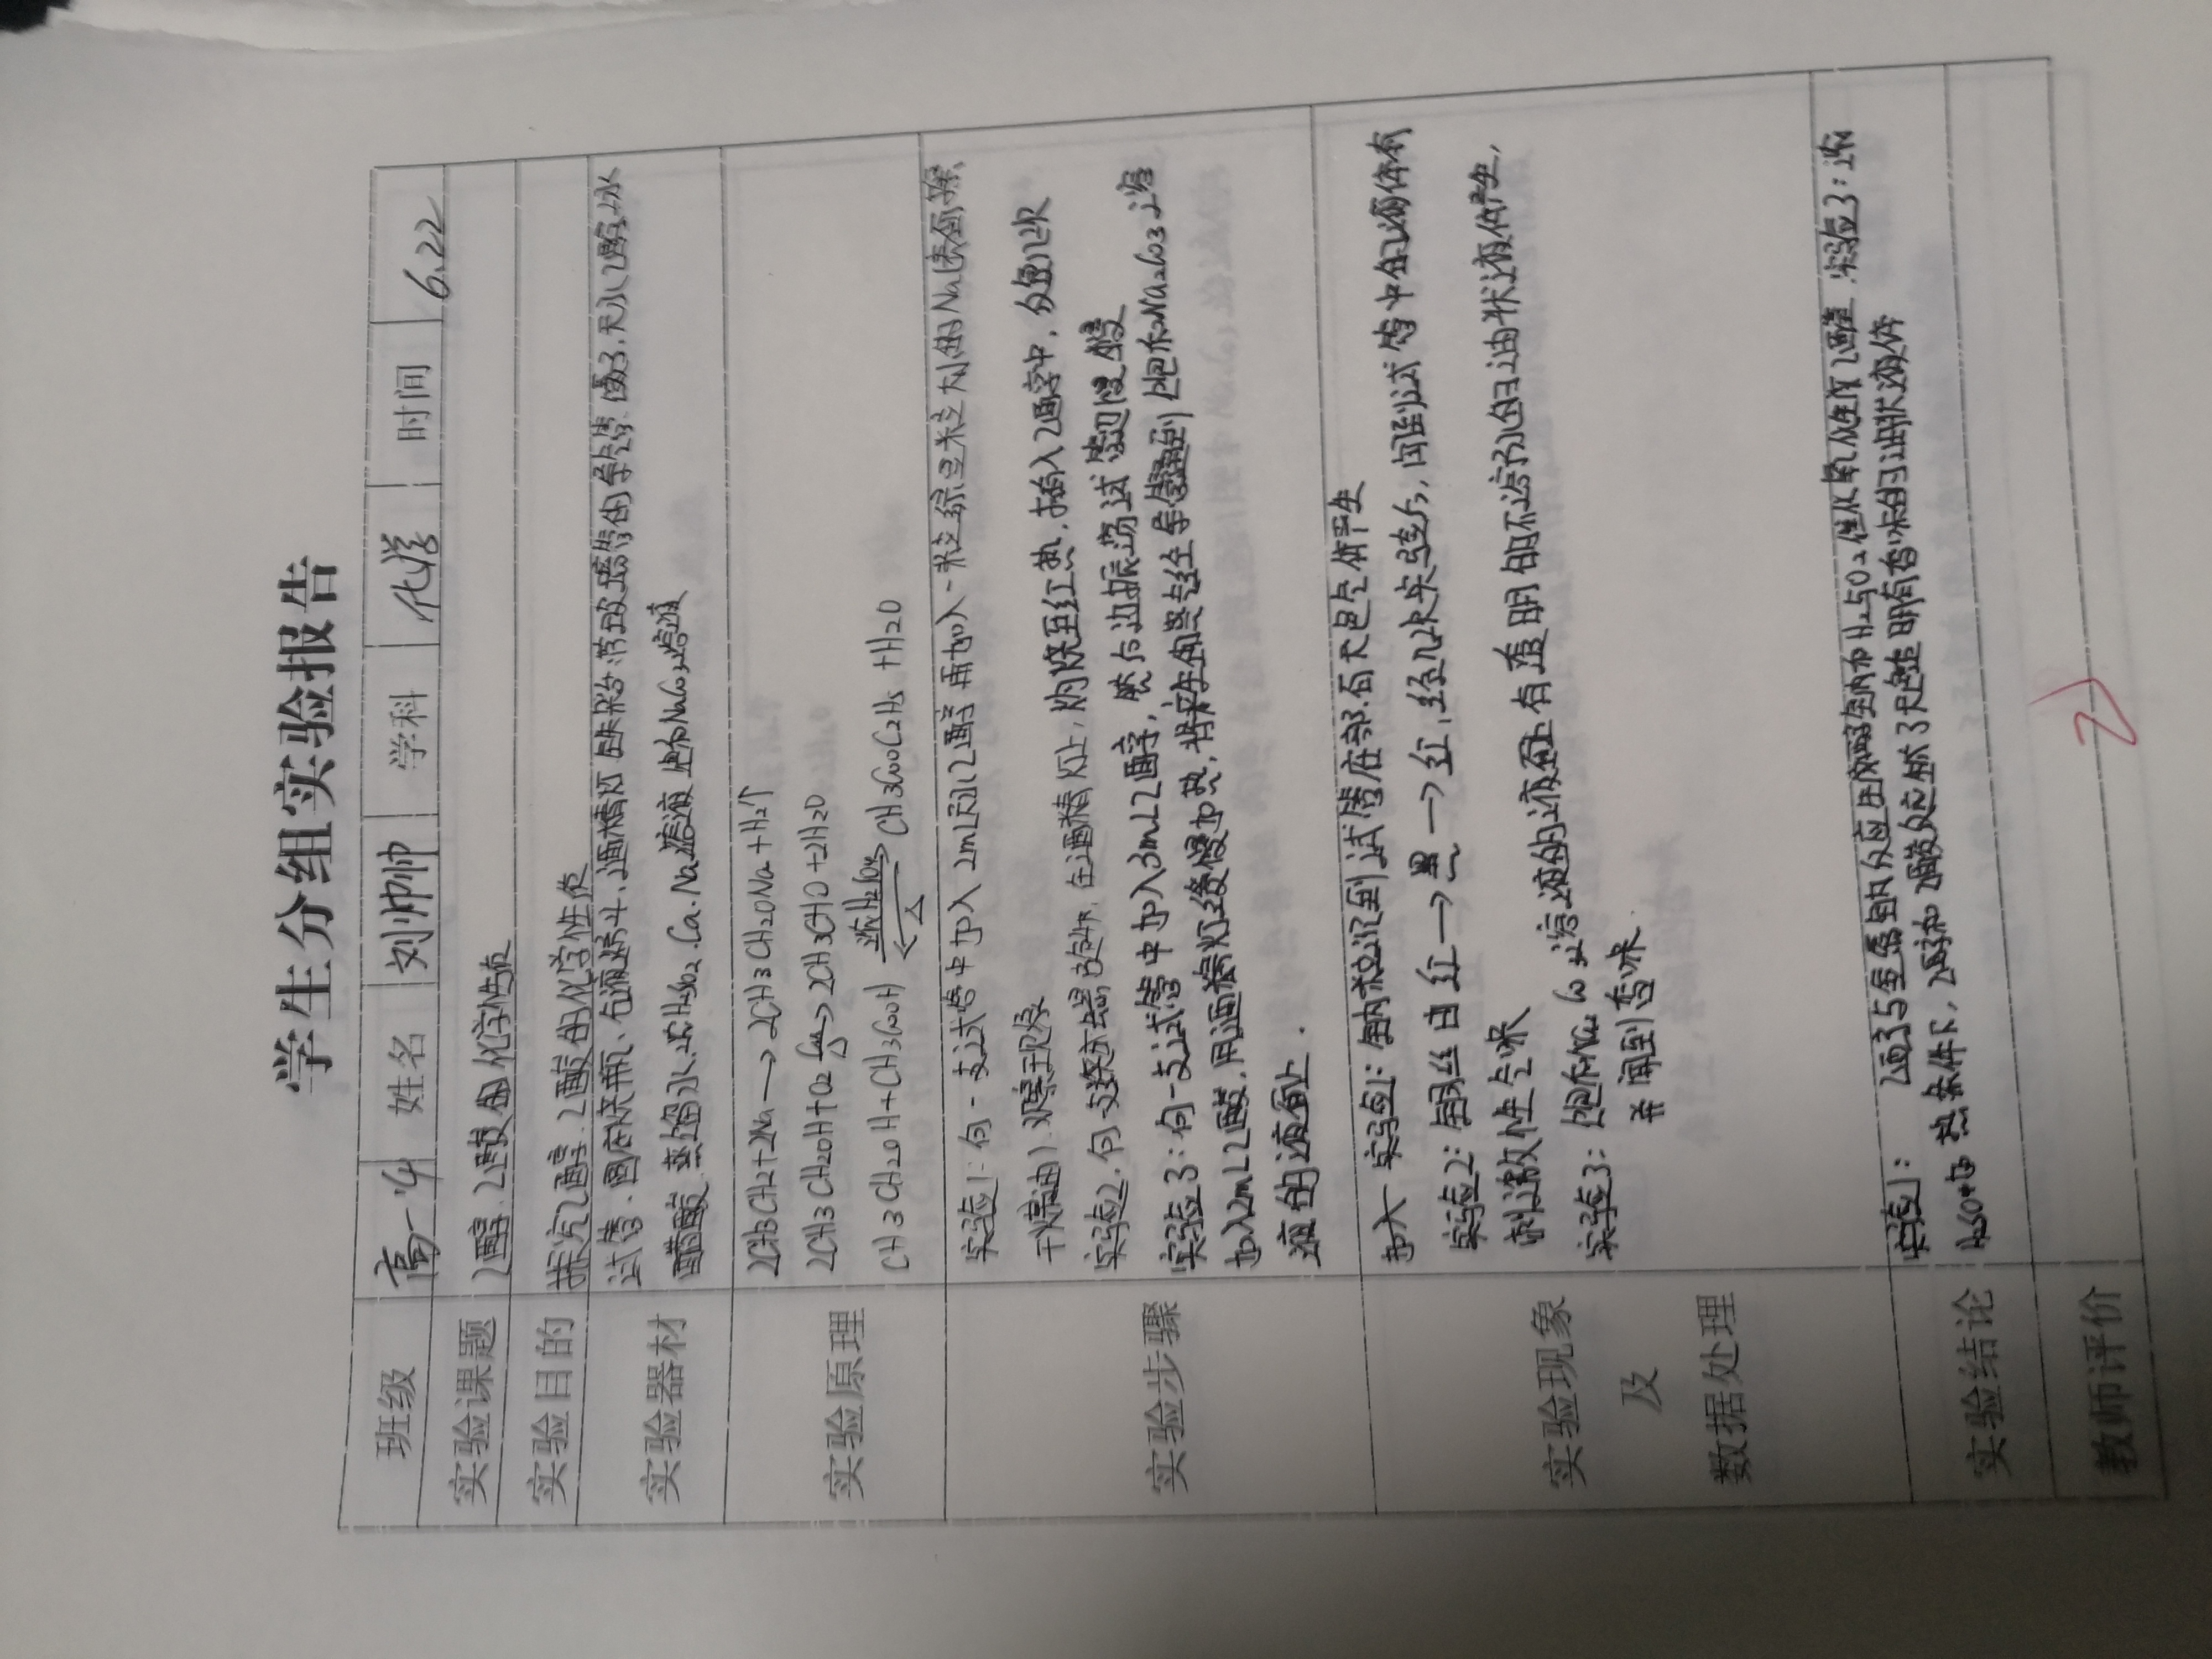 学生分组实验报告
班级 高一.4 姓名 刘帅帅 学科 化学 时间 6.22
实验课题 乙醇.乙酸的化学性质
实验目的 探究乙醇.乙酸的化学性质
实验器材 试管.圆底烧瓶、 酒精灯 铁架台 导管 无水乙醇 冰
醋酸 蒸馏水.浓H2SO4 溶液 饱和 溶液
实验原理
2CH3CH2+2Na→2CH3CH2ONa+H2↑
2CH3CH2OH+O2 Cu△→2CH3CHO+2H2O
CH3CH2OH+CH3COOH 浓H2SO4 △ CH3COOC2H5+H2O
实验步骤
实验1:向一支试管中加入2mL无水乙醇再加入一粒绿豆粒大的Na(表面擦
干煤油).观察现象
实验2.向 在酒精灯上,灼烧至红热,插入乙醇中,反复几次
实验3:向一支试管中加入3mL乙醇,然后边振荡试管边慢慢
加入2mL乙酸,用酒精灯缓慢加热,将产生的蒸气经导管通到饱和Na2CO3溶
液的液面上.
实验现象
及
数据处理
加入 实验1:钠粒沉到试管底部.有无色气体产生
实验2:铜丝由红→黑→红,经几次实验后,闻到试管中的液体有
刺激性气味
实验3:饱和Na2CO3溶液的液面上有透明的不溶于水的油状液体产生,
并闻到香味.
实验结论
实验1: 乙醇与金属钠反应生成乙醇钠和H2与O2催化氧化生成乙醛 实验3:浓
H2SO4 热条件下,乙醇和乙酸反应生成了无色透明有香味的油状液体
教师评价